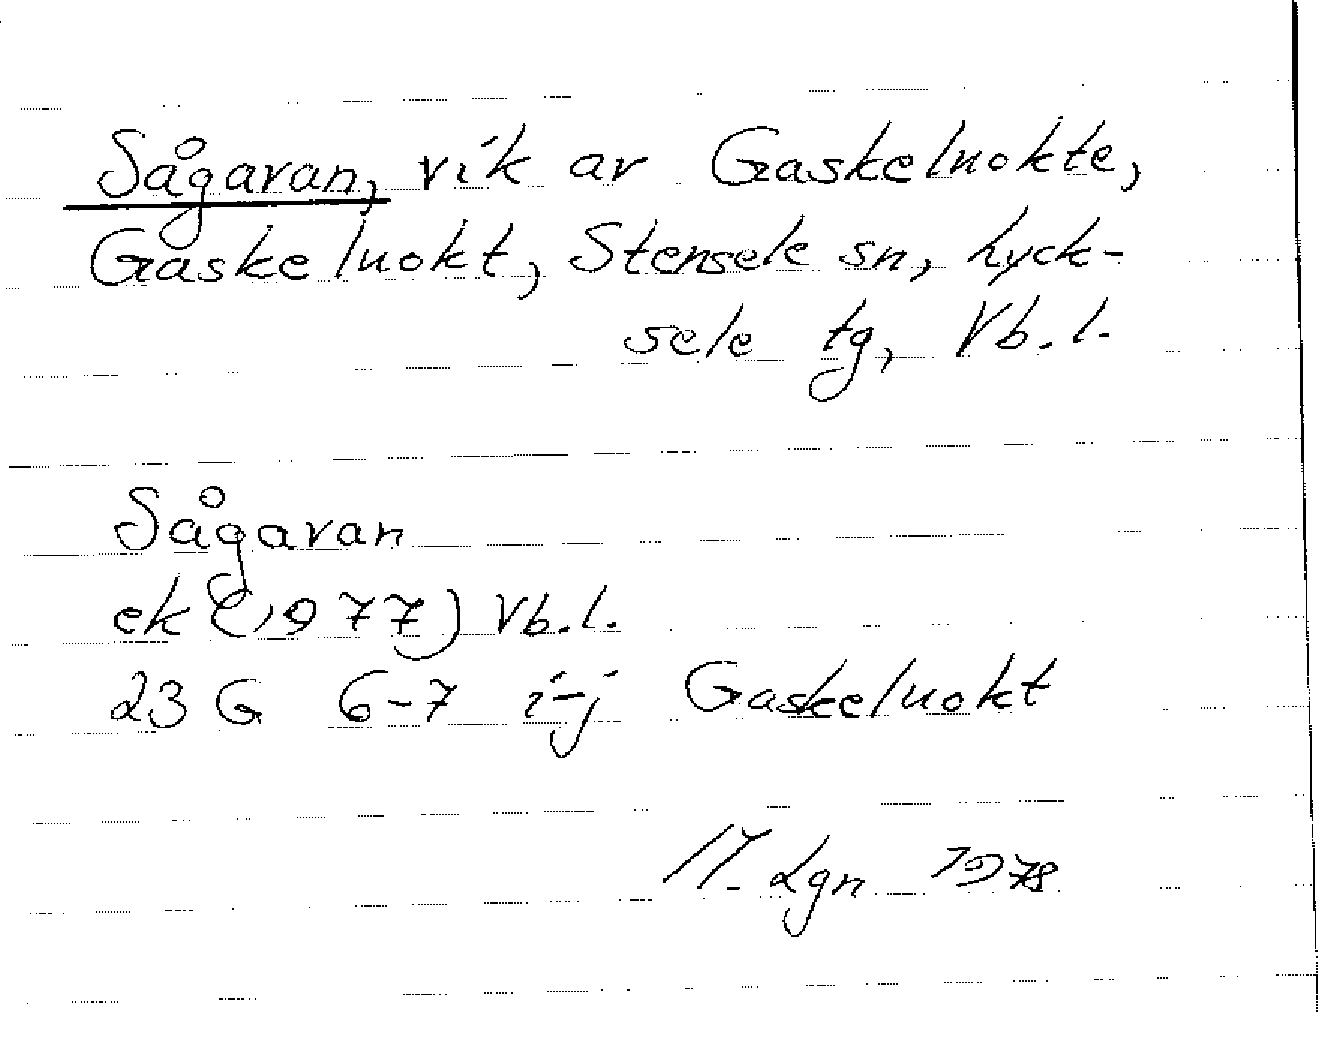 Sågavan, vik av Gaskeluokte,
Gaskeluokt, Stensele sn, Lyck-
sele tg, Vb. l.
Sågavan
ek (1977) Vb. l.
23 G 6-7 i-j Gaskeluokt
Lgn 1978